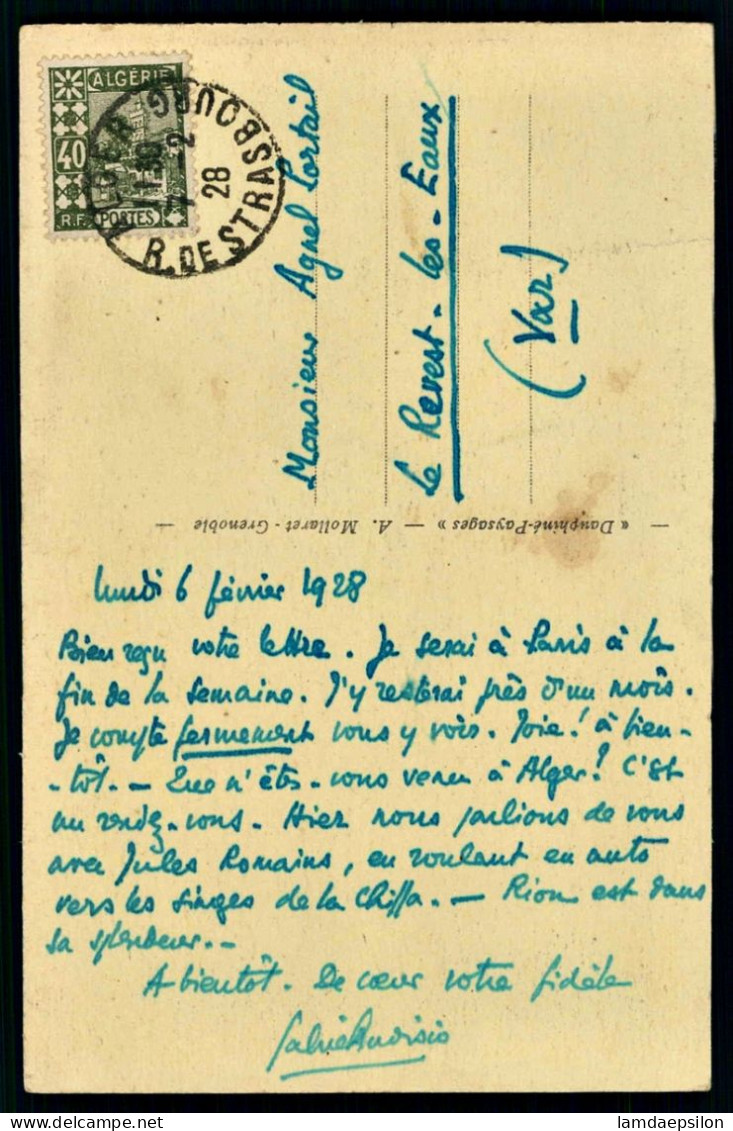 ALGÉRIE
40
R.F. POSTES
ALGER R. DE STRASBOURG
11-30
7 -2
28
Monsieur Agnel Portail
Le Revest-les-Eaux
(Var)
— « Dauphiné-Paysages » — A. Mollaret - Grenoble —
lundi 6 février 1928
Bien reçu votre lettre. Je serai à Paris à la
fin de la semaine. J'y resterai près d'un mois.
Je compte fermement vous y voir. Joie! à bien-
-tôt. — Que n'êtes-vous venu à Alger! C'est
un rendez-vous. Hier nous parlions de vous
avec Jules Romains, en roulant en auto
vers les singes de la Chiffa. — est dans
sa splendeur. -
A bientôt. De cœur votre fidèle
Gabriel Audisio
lamdaepsilon